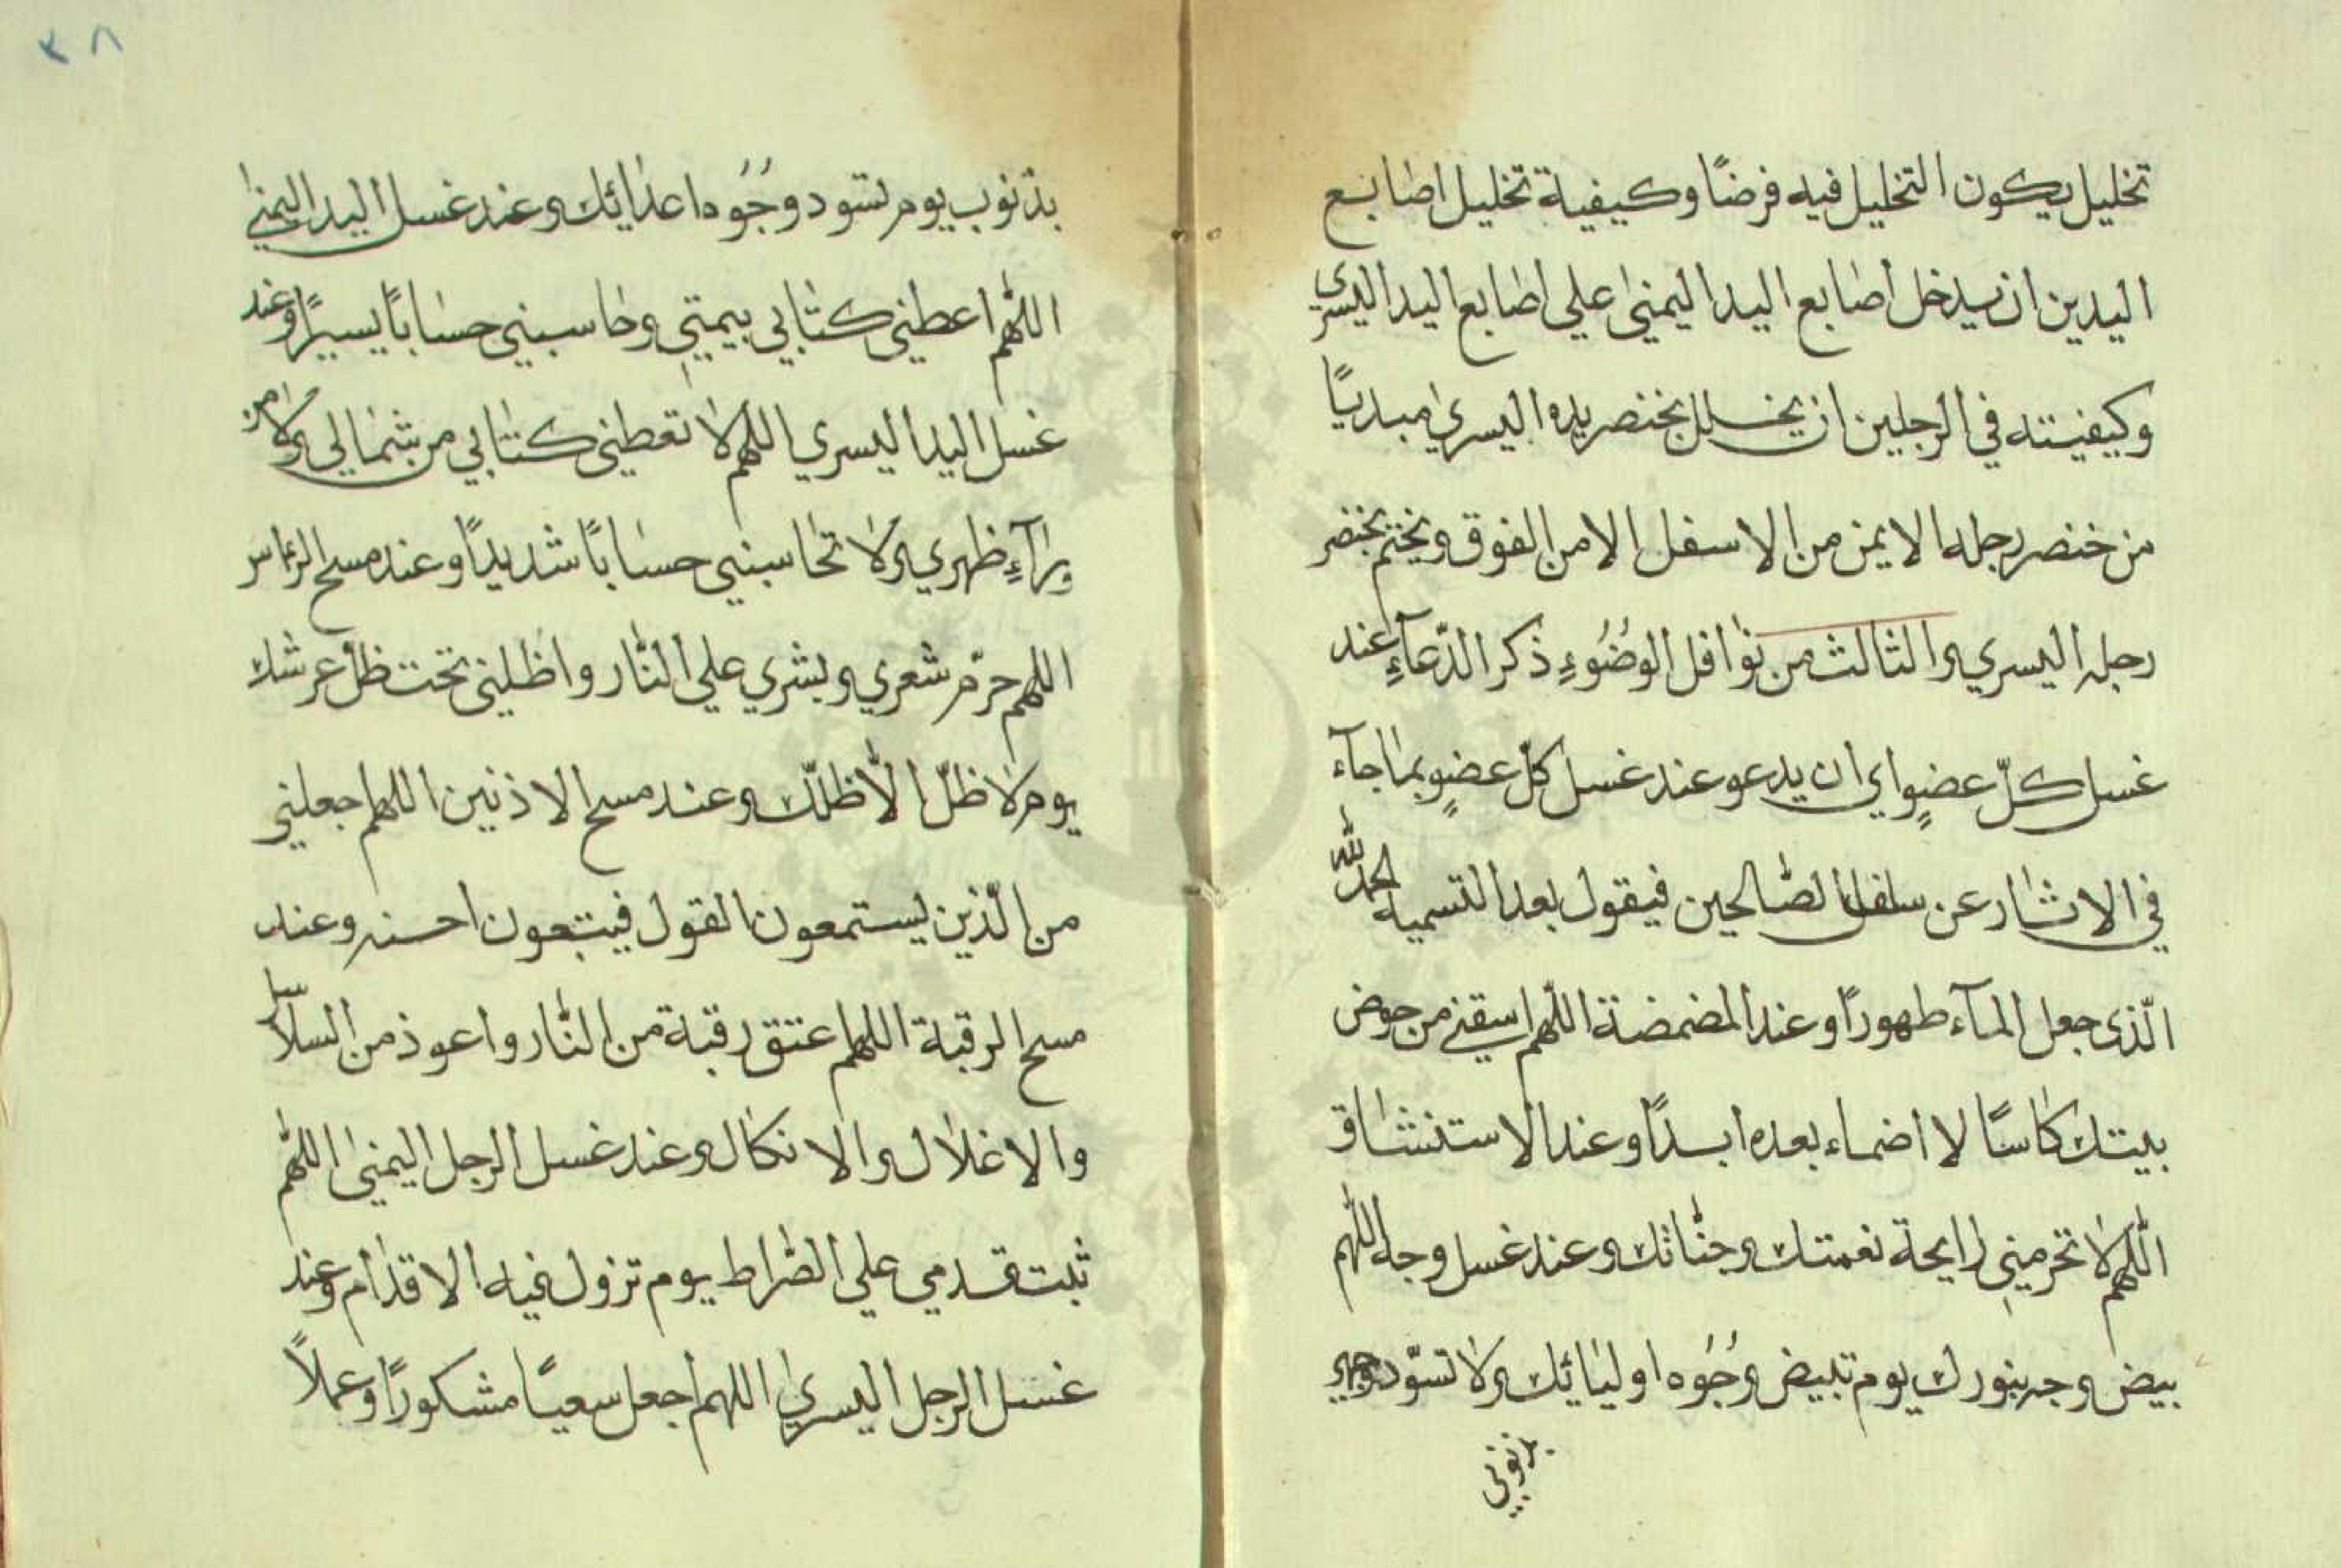 تخليل يكون التخليل فيه فرضًا وكيفية تخليل اصابع
اليدين ان يدخل اصابع اليد اليمنى علي اصابع اليد اليسري
وكيفيته في الرجلين ان يخلل بخنصر يده اليسرى مبديًا
من خنصر رجله الايمن من الاسفل الا من الفوق ويختم بخنصر
رجله اليسري والثالث من نوافل الوضُوءِ ذكر الدّعآءِ عند
غسل كلّ عضوٍ اي ان يدعو عند غسل كلّ عضوٍ بما جآء
في الاثار عن سلف الصّالحين فيقول بعد التسمية الحمد لله
الّذى جعل المآء طهورًا وعند المضمضة اللّهم اسقني من حوض
بيتك كاسًا لا اضماء بعده ابدًا وعند الاستنشاق
اللّهم لا تحرميني رايحة نعمتك وجنّاتك وعند غسل وجه اللّهم
بيض وجهي بنورك يوم تبيض وجُوه اوليائك ولا تسّود وجهي
بذنوبي
٢٨
بذنوب يوم تسود وجُوه اعدائك وعند غسل اليد اليمنى
اللّهم اعطيني كتابي بيميني وحاسبني حسابًا يسيرًا وعند
غسل اليد اليسري اللهم لا تعطيني كتابي من شمالي ولا من
ورآءِ ظهري ولا تحاسبني حسابًا شديدًا وعند مسح الرأس
اللهم حرّم شعري وبشري علي النّار واظلني تحت ظل عرشك
يوم لا ظلّ الّا ظلّك وعند مسح الاذنين اللهم اجعلني
من الّذين يستمعون القول فيتبعون احسنه وعند
مسح الرقبة اللهم اعتق رقبة من النّار واعوذ من السلاسل
والاغلال والانكال وعند غسل الرجل اليمنى اللّهم
ثبت قدمي علي الصّراط يوم تزول فيه الاقدام وعند
غسل الرجل اليسرى اللهم اجعل سعيًا مشكورًا وعملاً